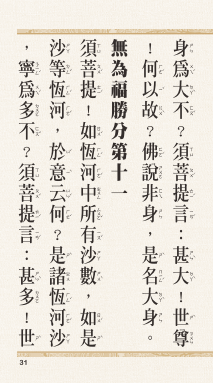 身為大不？須菩提言：甚大！世尊
！何以故？佛說非身，是名大身。
無為福勝分第十一
須菩提！如恆河中所有沙數，如是
沙等恆河，於意云何？是諸恆河沙
，寧為多不？須菩提言：甚多！世
31